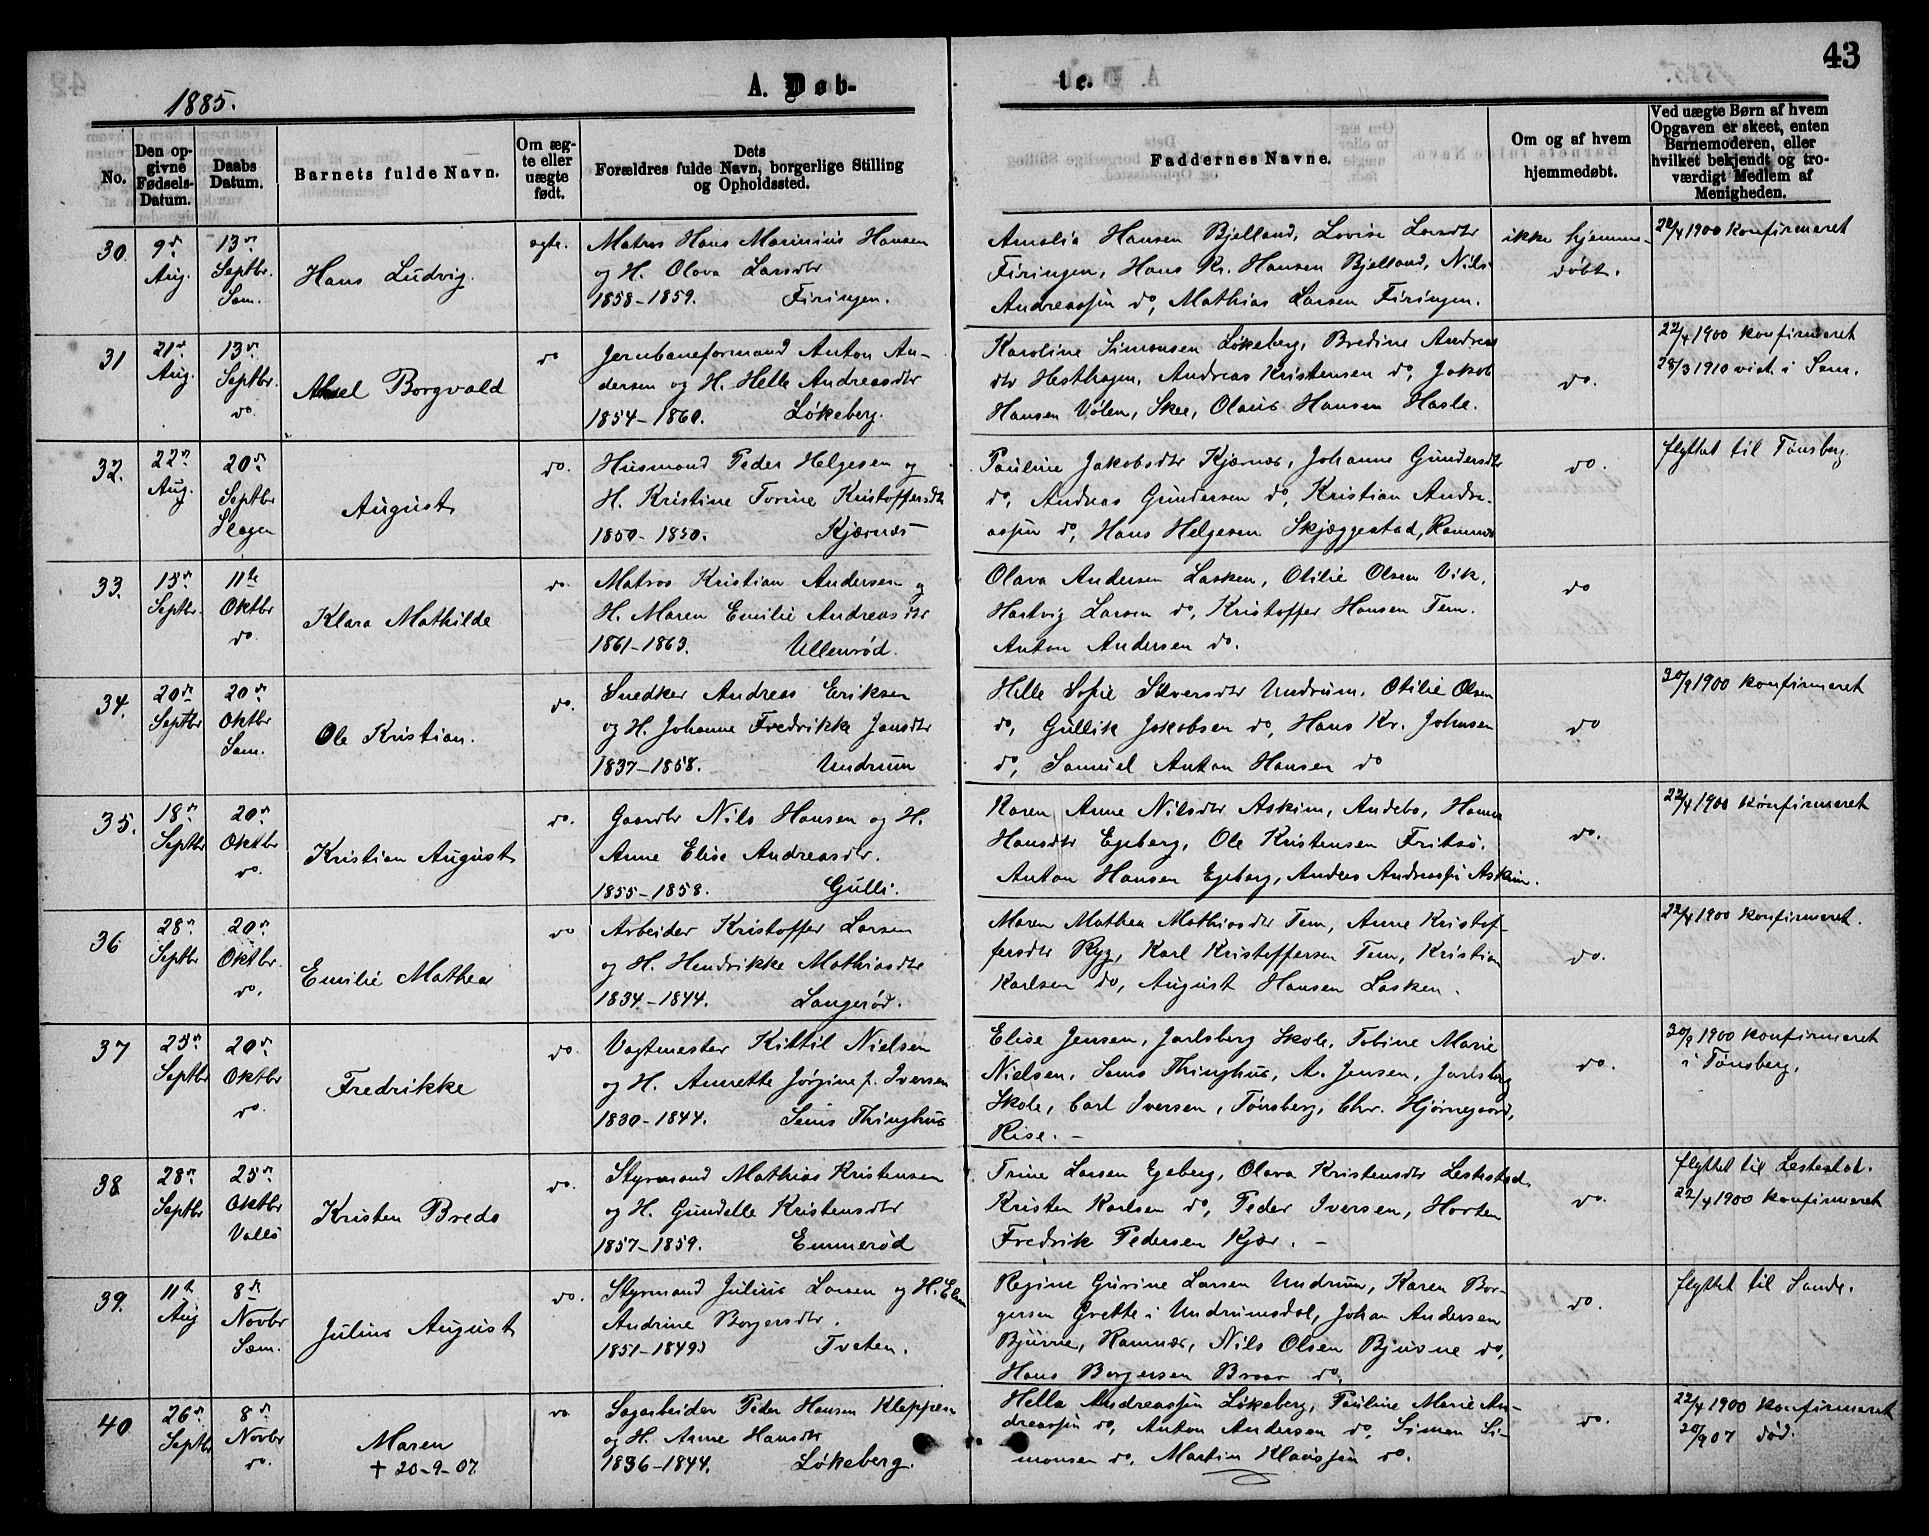 43
1885.
A. Døb-
te.
No.
Den op-
givne
Fødsels-
Datum.
Daabs
Datum.
Barnets fulde Navn.
Om æg-
te eller
uægte
født.
Dets
Forældres fulde Navn, borgerlige Stilling
og Opholdssted.
Faddernes Navne.
Om og af hvem
hjemmedøbt.
Ved uægte Børn af hvem
Opgaven er skeet, enten
Barnemoderen, eller
hvilket bekjendt og tro-
værdigt Medlem af
Menigheden.
30.
9de
Aug.
13de
Septbr.
Sem.
Hans Ludvig.
ægte.
Matros Hans Marinius Hansen
og H. Olava Larsdtr
1858-1859. Firingen.
Amalia Hansen Bjelland, Lovise Larsdtr
Firingen, Hans Kr. Hansen Bjelland, Nils
Andreassøn do, Mathias Larsen Firingen.
ikke hjemme-
døbt.
22/4 1900 konfirmeret
31
21de
Aug.
13de
Septbr.
do.
Aksel Borgvald
do
Jernbaneformand Anton An-
dersen og H. Helle Andreasdtr
1854-1860. Løkeberg.
Karoline Simonsen Løkeberg, Bredine Andreas
dtr Hesthagen, Andreas Kristensen do, Jakob
Hansen Vølen, Skee, Olaus Hansen Hasle.
do.
22/4 1900 konfirmeret
28/3 1910 viet i Sem.
32.
22de
Aug.
20de
Septbr
Slagen
August
do.
Husmand Peder Helgesen og
H. Kristine Torine Kristoffersdtr
1850-1850. Kjærnæs
Pauline Jakobsdtr Kjærnæs, Johanne Gundersdtr
do, Andreas Gundersen do, Kristian Andre-
assøn do, Hans Helgesen Skjæggestad, Ramnæs
do.
flyttet til Tønsberg.
33.
15de
Septbr.
11te
Oktbr
do.
Klara Mathilde
do.
Matros Kristian Andersen og
H. Maren Emilie Andreasdtr
1861-1863. Ullenrød.
Olava Andersen Lasken, Otilie Olsen Vik,
Hartvig Larsen do, Kristoffer Hansen Tem.
Anton Andersen do.
do
34.
20de
Septbr
20de
Oktbr
Sem.
Ole Kristian.
do.
Snedker Andreas Eriksen
og H. Johanne Fredrikke Jansdtr
1837-1858. Undrum
Helle Sofie Siversdtr Undrum, Otilie Olsen
do, Gullik Jakobsen do, Hans Kr. Johnsen
do, Samuel Anton Hansen do
do
30/9 1900 konfirmeret
35.
18de
Septbr
20de
Oktbr
do.
Kristian August
do.
Gaardbr Nils Hansen og H.
Anne Elise Andreasdtr.
1855-1858. Gulli.
Karen Anne Nilsdtr Askim, Andebo, Hanna
Hansdtr Egeberg, Ole Kristensen Fritsø.
Anton Hansen Egeberg, Anders Andreassøn Askim.
do.
22/4 1900 konfirmeret
36
28de
Septbr
20de
Oktbr.
do.
Emilie Mathea
do
Arbeider Kristoffer Larsen
og H. Hendrikke Mathiasdtr
1834-1844. Langerød.
Maren Mathea Mathiasdtr Tem, Anne Kristof-
fersdtr Ryg, Karl Kristoffersen Tem, Kristian
Karlsen do, August Hansen Lasken.
do.
22/4 1900 konfirmeret.
37
25de
Septbr
20de
Oktbr
do.
Fredrikke
do.
Vagtmester Kittil Nielsen
og H. Annette Jørgine f. Iversen
1830-1844. Sems Thinghus
Elise Jensen, Jarlsberg Skole, Tobine Marie
Nielsen, Sems Thinghus, A. Jensen, Jarlsberg
Skole, Carl Iversen, Tønsberg, Chr. Hjørnegaard,
Rise. -
do.
30/9 1900 konfirmeret
i Tønsberg.
38
28de
Septbr
25de
Oktbr
Vallø
Kristen Bredo
do.
Styrmand Mathias Kristensen
og H. Gundelle Kristensdtr
1857-1859. Emmerød
Trine Larsen Egeberg, Olava Kristensdtr Lestestad
Kristen Karlsen do, Peder Iversen, Horten
Fredrik Pedersen Kjær. -
do.
flyttet til Lestestad.
22/4 1900 konfirmeret
39.
11te
Aug
8de
Novbr
Sem.
Julius August
do.
Styrmand Julius Larsen og H. Elen
Andrine Borgersdtr.
1851-1849) Tveten.
Regine Gurine Larsen Undrum, Karen Bor-
gersen Grette i Undrumsdal, Johan Andersen
Bjurne, Ramnæs, Nils Olsen Bjuvne do,
Hans Borgersen Braar do.
do.
flyttet til Sande.
40
26de
Septbr
8de
Novbr
do.
Maren
† 20-9-07.
do
Sagarbeider Peder Hansen Kleppen
og H. Anne Hansdtr
1836-1844. Løkeberg.
Hella Andreassøn Løkeberg, Pauline Marie An-
dreassøn do, Anton Andersen do, Simon Si-
monsen do, Martin Klausøn do.
do.
22/4 1900 konfirmeret
20/9 07 død.